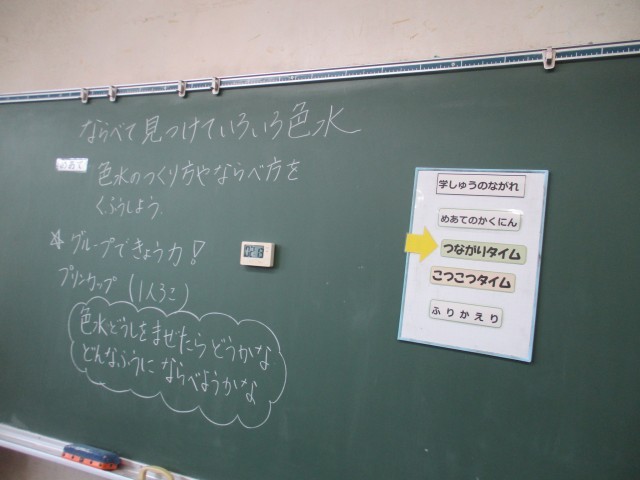 ならべて見つけていろいろ色水
めあて
色水のつくり方やならべ方を
くふうしよう.
グループできょう力!
プリンカップ (1人3こ)
色水どうしをまぜたらどうかな
どんなふうにならべようかな
学しゅうのながれ
めあてのかくにん
つながりタイム
こつこつタイム
ふりかえり